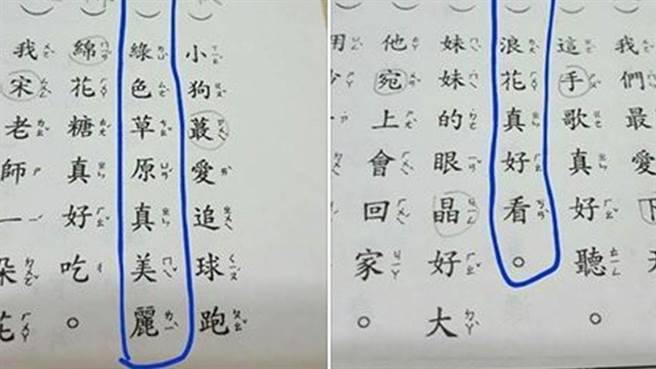 小狗蕞愛追球跑
綠色草原真美麗
綿花糖真好吃。
我宋老師一朵花
我們最
下
這手歌真好聽。
浪花真好看。
妹妹的眼晶好大
他宛上會回家。
用